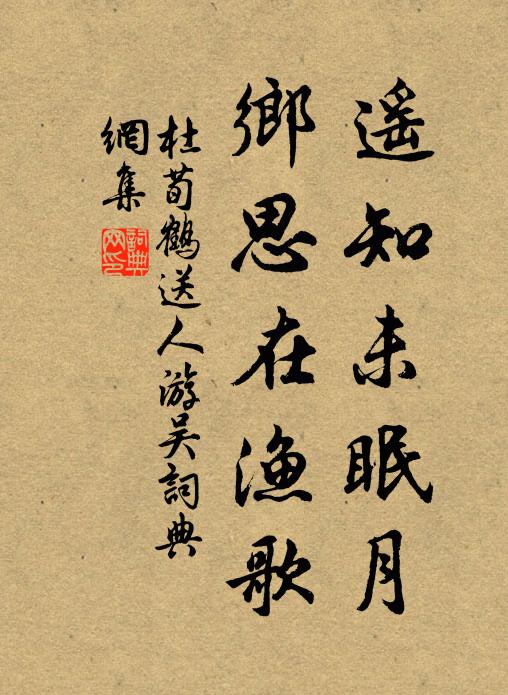 遥知未眠月
鄉思在漁歌
杜荀鶴送人游吴詞典
網集
詞典網印